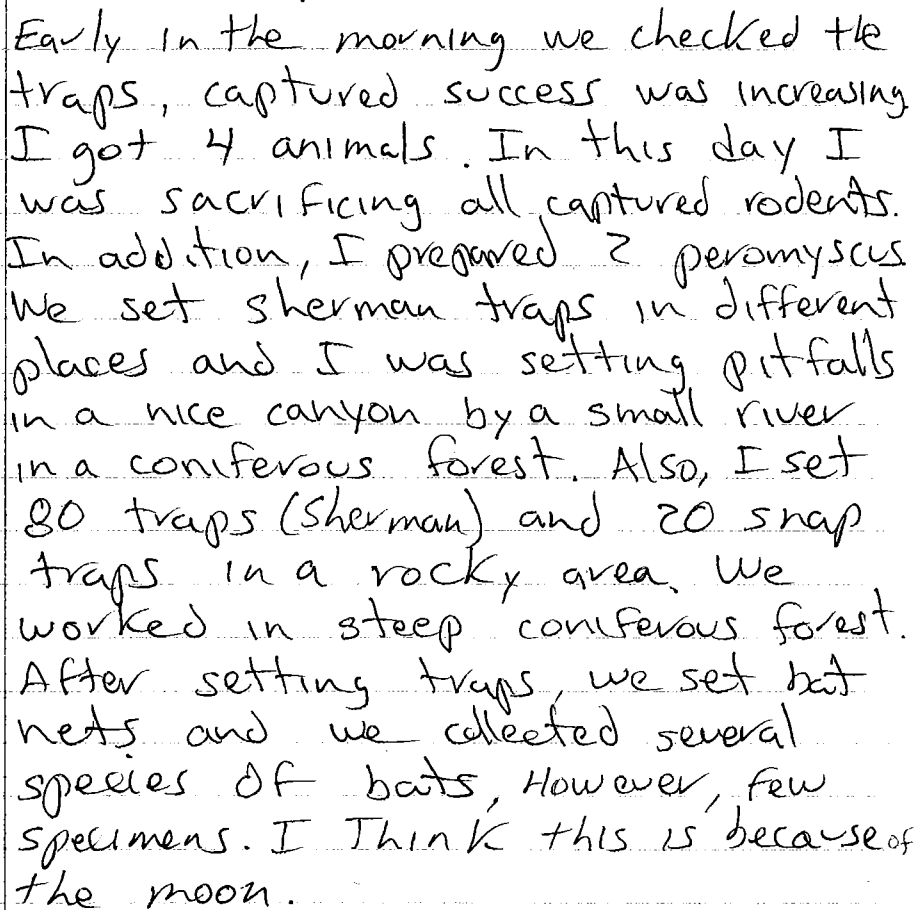 Early in the morning we checked the
traps, captured success was increasing
I got 4 animals. In this day I
was sacrificing all captured rodents.
In addition, I prepared 2 peromyscus
We set sherman traps in different
places and I was setting pitfalls
in a nice canyon by a small river
in a coniferous forest. Also, I set
80 traps (Sherman) and 20 snap
traps in a rocky area. We
worked in steep coniferous forest.
After setting traps, we set bat
nets and we collected several
species of bats, However, few
specimens. I Think this is because of
the moon.